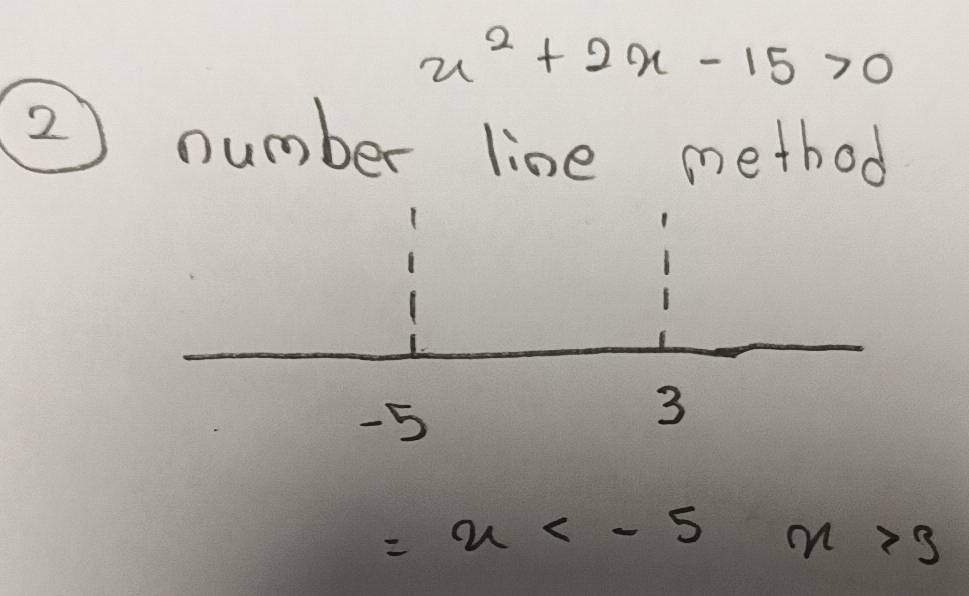 x² + 2x - 15 > 0
2 number line method
-5 3
= x < - 5 x > 3